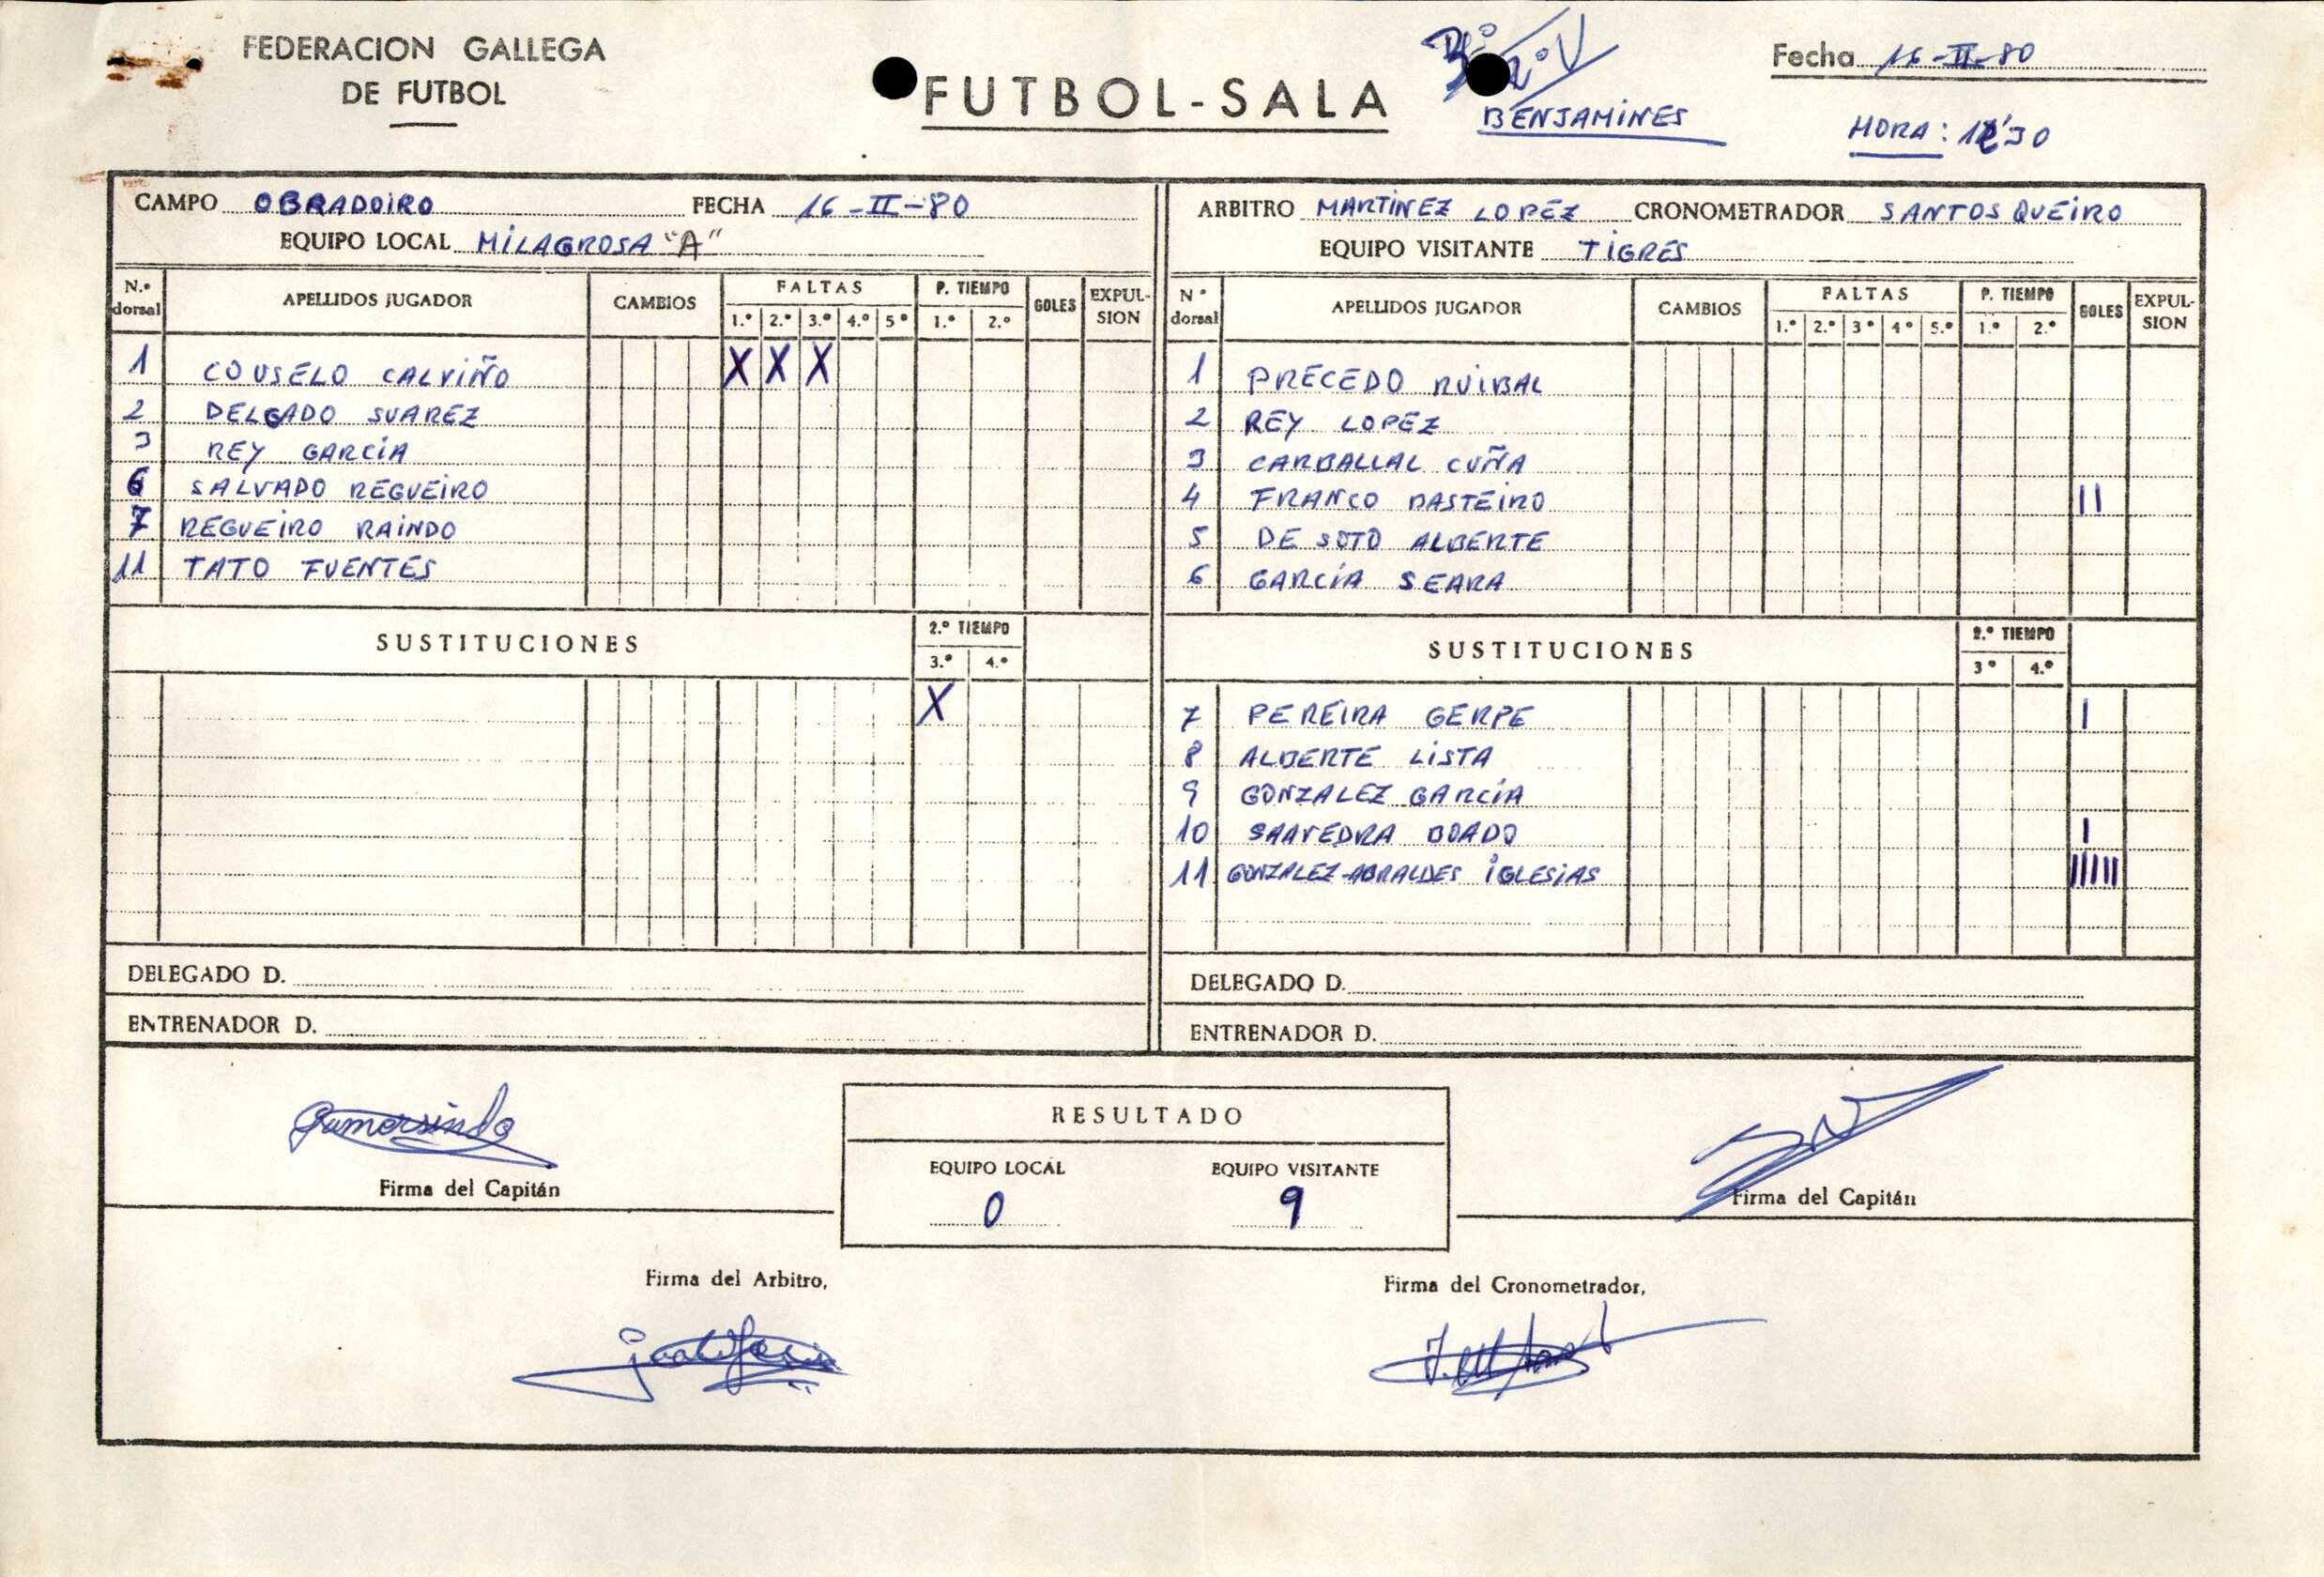 FEDERACION GALLEGA
DE FUTBOL
FUTBOL-SALA
BENJAMINES
Fecha 16-II-80
HORA:
CAMPO OBRADOIRO FECHA 16-II-80
EQUIPO LOCAL MILAGROSA "A"
ARBITRO MARTINEZ LOPEZ CRONOMETRADOR SANTOS QUEIRO
EQUIPO VISITANTE TIGRES
N.º dorsal APELLIDOS JUGADOR CAMBIOS FALTAS 1.º 2.º 3.º 4.º 5º P. TIEMPO 1.º 2.º GOLES EXPULSION
1 COUSELO CALVIÑO X X X
2 DELGADO SUAREZ
3 REY GARCIA
6 SALVADO REGUEIRO
7 REGUEIRO RAINDO
11 TATO FUENTES
SUSTITUCIONES 2.º TIEMPO 3.º 4.º
X
DELEGADO D.
ENTRENADOR D.
Nº dorsal APELLIDOS JUGADOR CAMBIOS FALTAS 1.º 2.º 3º 4º 5.º P. TIEMPO 1.º 2.º GOLES EXPULSION
1 PRECEDO RUIBAL
2 REY LOPEZ
3 CARBALLAL CUÑA
4 FRANCO BASTEIRO II
5 DE SOTO ALBERTE
6 GARCIA SEARA
SUSTITUCIONES 2.º TIEMPO 3º 4.º
7 PEREIRA GERPE I
8 ALBERTE LISTA
9 GONZALEZ GARCIA
10 SAAVEDRA BOADO I
11 GONZALEZ-ABRALDES IGLESIAS IIIII
DELEGADO D.
ENTRENADOR D.
Gumersindo
Firma del Capitán
RESULTADO
EQUIPO LOCAL EQUIPO VISITANTE
0 9
Firma del Capitán
Firma del Arbitro,
Firma del Cronometrador,